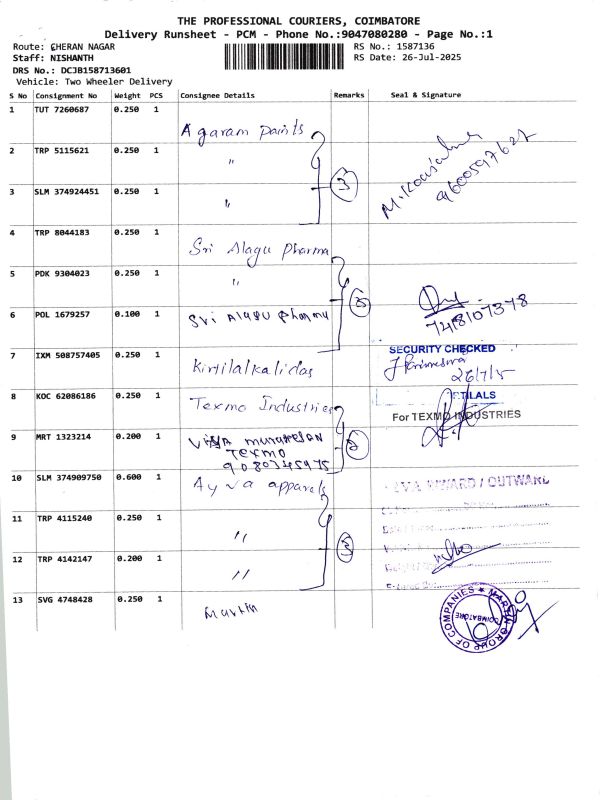 THE PROFESSIONAL COURIERS, COIMBATORE
Delivery Runsheet - PCM - Phone No.:9047080280 - Page No.:1
Route: CHERAN NAGAR
RS No.: 1587136
Staff: NISHANTH
RS Date: 26-Jul-2025
DRS No.: DCJB158713601
Vehicle: Two Wheeler Delivery
S No Consignment No Weight PCS Consignee Details Remarks Seal & Signature
1 TUT 7260687 0.250 1 Agaram paints
2 TRP 5115621 0.250 1 "
3 SLM 374924451 0.250 1 " 3
9600597627
4 TRP 8044183 0.250 1 Sri Alagu pharma
5 PDK 9304023 0.250 1 "
6 POL 1679257 0.100 1 Sri Alagu pharma
7418107378
7 IXM 508757405 0.250 1 Kirtilalkalidas
SECURITY CHECKED
26/7/5
8 KOC 62086186 0.250 1 Texmo Industries
For TEXMO INDUSTRIES
9 MRT 1323214 0.200 1
Texmo
9080345975
10 SLM 374909750 0.600 1 Ayva apparels
INWARD / OUTWARD
11 TRP 4115240 0.250 1 "
12 TRP 4142147 0.200 1 "
13 SVG 4748428 0.250 1 Martin
MARTIN GROUP OF COMPANIES
COIMBATORE